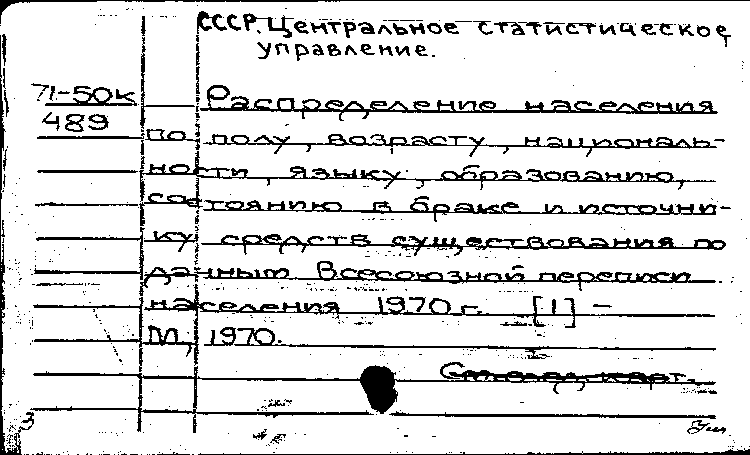 СССР. Центральное статистическое
управление.
71-50к
489
Распределение населения
по полу, возрасту, националь-
ности, языку, образованию,
состоянию в браке и источни-
ку средств существования по
данным Всесоюзной переписи
населения 1970 г. [1] -
М, 1970.
См. след. карт.
3